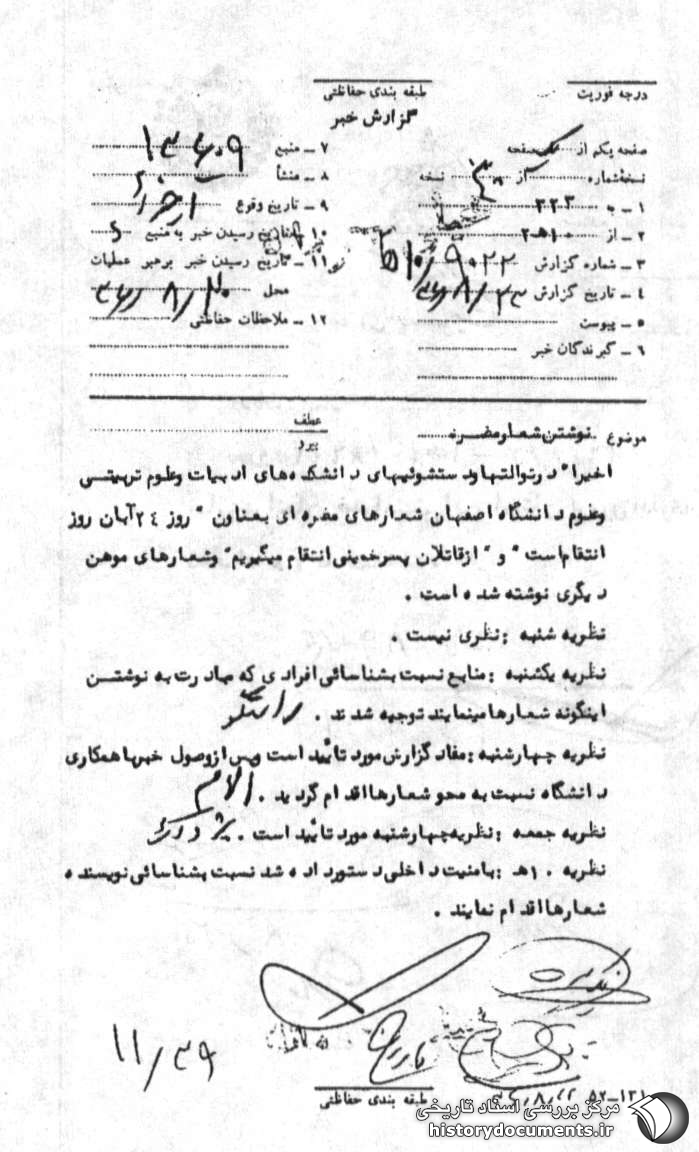 درجه فوریت
طبقه بندی حفاظتی
گزارش خبر
صفحه یکم از یک صفحه
نسخهٔ شماره از نسخه
۱ ـ به ۳۲۳
۲ ـ از ۱۰هـ۲
۳ ـ شماره گزارش ۹۰۲۲/۱۰هـ
۴ ـ تاریخ گزارش ۳۶/۸/۲۳
۵ ـ پیوست
۶ ـ گیرندگان خبر
۷ ـ منبع ۱۳۶۰۹
۸ ـ منشأ
۹ ـ تاریخ وقوع اخیراً
۱۰ ـ تاریخ رسیدن خبر به منبع
۱۱ ـ تاریخ رسیدن خبر برهبر عملیات
محل ۳۶/۸/۲۰
۱۲ ـ ملاحظات حفاظتی
موضوع نوشتن شعار مضره
عطف
پیرو
اخیرا" در توالتها و دستشوئیهای دانشکده‌های ادبیات و علوم تربیتی
و علوم دانشگاه اصفهان شعارهای مضره ای بعناون " روز ۲۴ آبان روز
انتقام است " و " از قاتلان پسر خمینی انتقام میگیریم" و شعارهای موهن
دیگری نوشته شده است .
نظریه شنبه : نظری نیست .
نظریه یکشنبه : منابع نسبت بشناسائی افرادی که مبادرت به نوشتن
اینگونه شعارها مینمایند توجیه شدند . راستگو
نظریه چهارشنبه : مفاد گزارش مورد تائید است و پس از وصول خبر با همکاری
دانشگاه نسبت به محو شعارها اقدام گردید .
نظریه جمعه : نظریه چهارشنبه مورد تائید است .
نظریه ۱۰هـ : بامنیت داخلی دستور داده شد نسبت بشناسائی نویسنده
شعارها اقدام نمایند .
۱۱/۳۹
۵۲-۱۳۱
طبقه بندی حفاظتی
مرکز بررسی اسناد تاریخی
historydocuments.ir